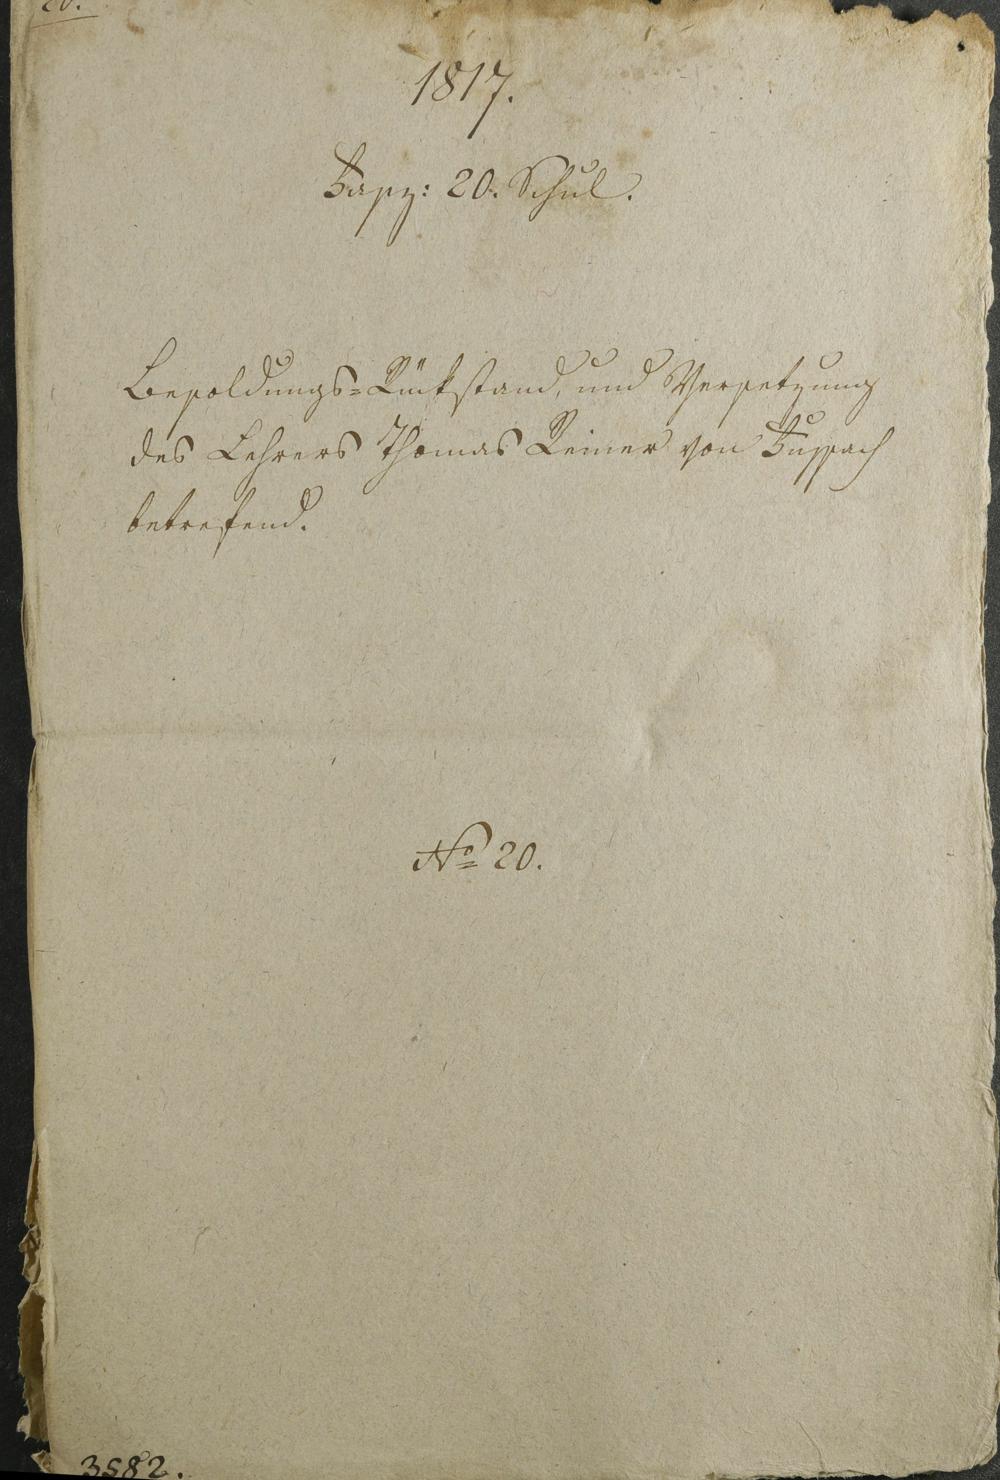 20.
1817.
Fasz: 20. Schul.
Besoldungs-Rückstand, und Versetzung
des Lehrers Thomas Reiner von
betreffend.
No 20.
3582.